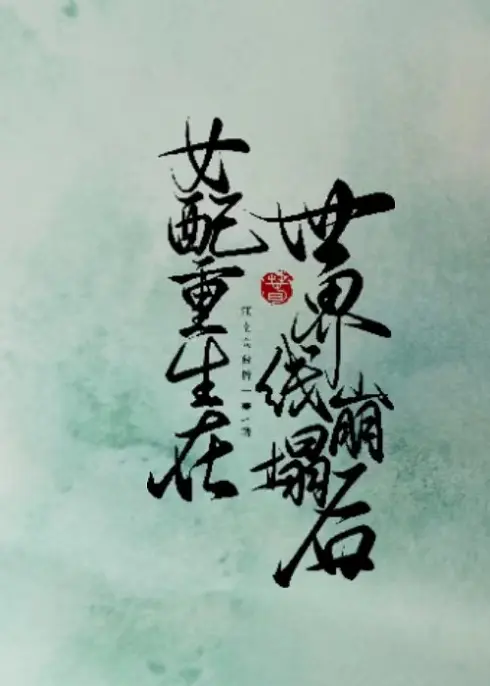 女配重生在
世界线崩塌后